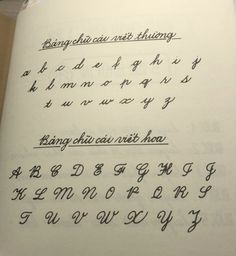 Bảng chữ cái viết thường
a b c d e f g h i j
k l m n o p q r s
t u v w x y z
Bảng chữ cái viết hoa
A B C D E F G H I J
K L M N O P Q R S
T U V W X Y Z